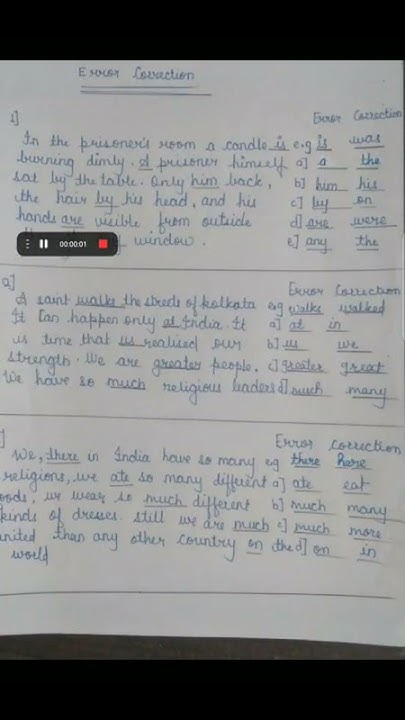 Error Correction
1]
Error Correction
In the prisoner's room a candle is e.g is was
burning dimly. A prisoner himself a] a the
sat by the table. Only him back, b] him his
the hair by his head, and his c] by on
hands are visible from outside d] are were
window. e] any the
00:00:01
Error Correction
A saint walks the streds of kolkata e.g walks walked
It Can happen only at India. It a] at in
is time that us realised our b] us we
strength. We are greater people. c] greater great
We have so much religious leaders d] much many
Error Correction
We, there in India have so many eg there here
religions, we ate so many different a] ate eat
oods, we wear so much different b] much many
kinds of dresses. still we are much c] much more
united than any other country on the d] on in
world